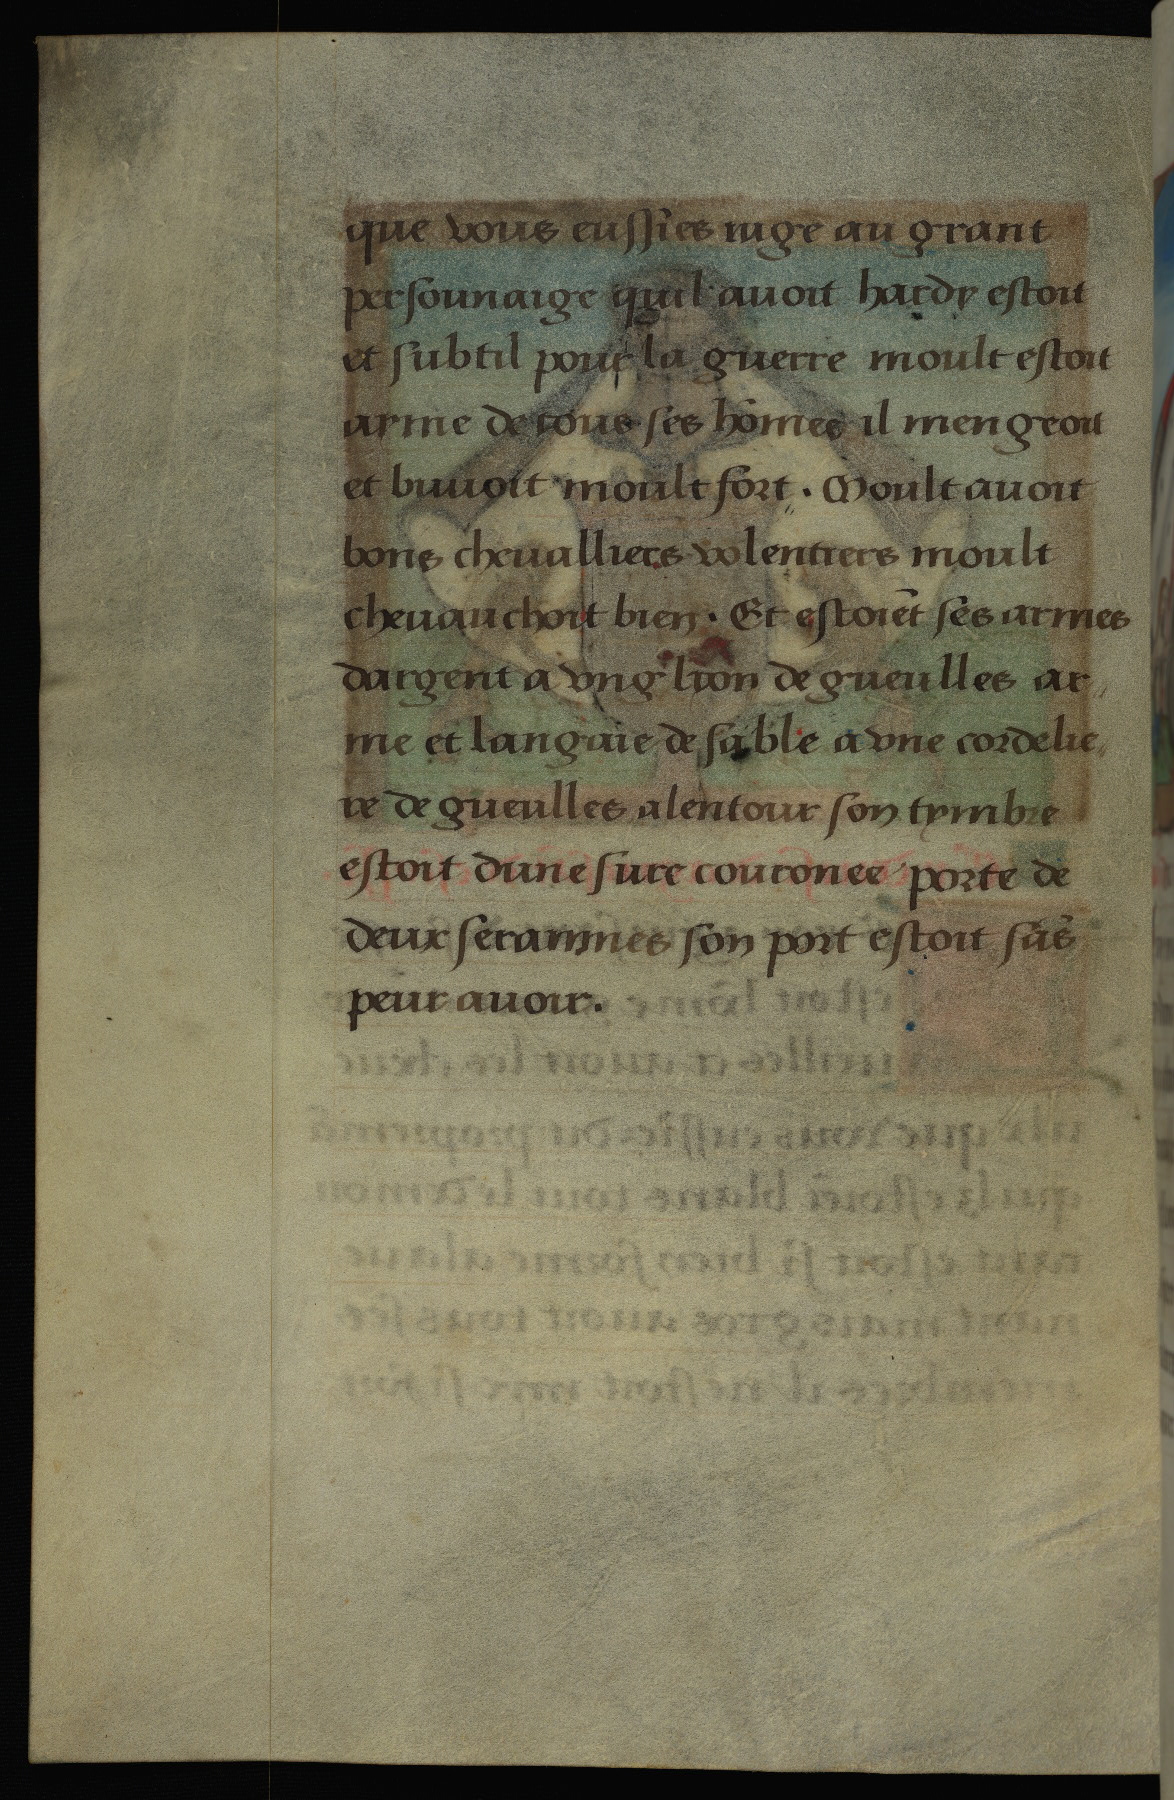 que vous eussies iuge au grant
personnaige quil auoit hardy estoit
et subtil pour la guerre moult estoit
arme de tous ses hōmes il mengeoit
et buuoit moult fort . Moult auoit
bons cheualliers volentiers moult
cheuauchoit bien . Et estoiēt ses armes
dargent a vng lion de gueulles ar
me et langaie de sable a vne cordelie
re de gueulles alentour son tymbre
estoit dune sure couronee porte de
deux seraines son port estoit sās
peur auoir.